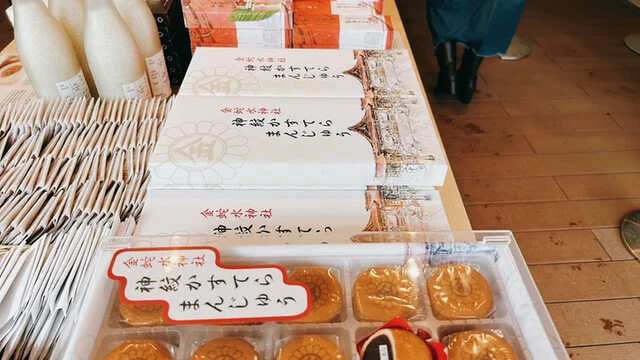 金蛇水神社
神紋かすてら
まんじゅう
金
金蛇水神社
神紋かすてら
まんじゅう
金蛇水神社
神紋かすてら
金蛇水神社
神紋かすてら
まんじゅう